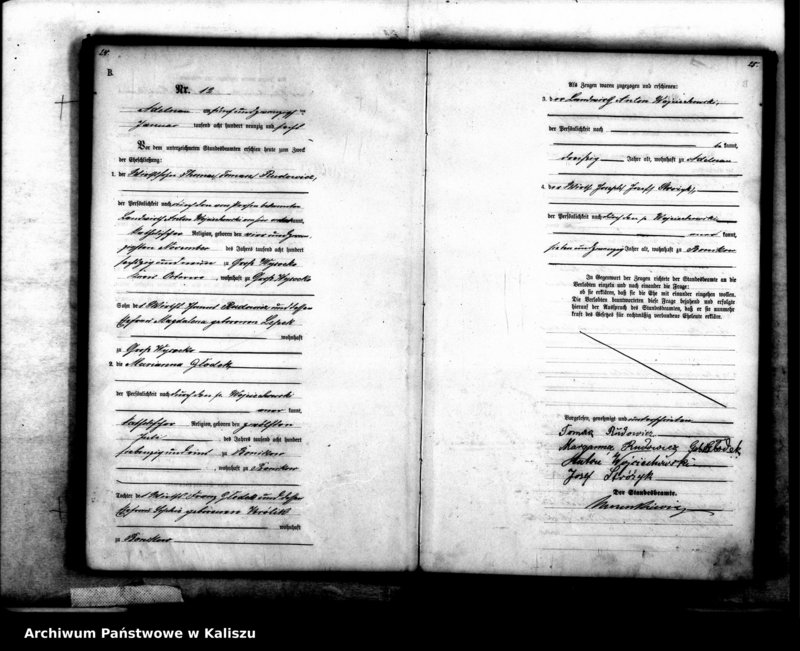 24.
B.
Nr. 12
Adelnau am fünfundzwanzigsten
Januar tausend acht hundert neunzig und sechs
Vor dem unterzeichneten Standesbeamten erschien heute zum Zweck
der Eheschließung:
1. der Wirthssohn Thomas, Tomasz Rudowicz,
der Persönlichkeit nach durch den
Landwirth Anton Wojciechowski kannt,
katholischer Religion, geboren den vierundzwan
zigsten November des Jahres tausend acht hundert
sechszig und neun zu Groß Wysocko
Kreis Ostrowo, wohnhaft zu Groß Wysocko
Sohn des Wirths Rudowicz und dessen
Ehefrau Magdalena geborenen
wohnhaft
zu Groß Wysocko
2. die Marianna Glodek
der Persönlichkeit nach durch den p. Wojciechowski
kannt,
katholischer Religion, geboren den zwölften
Juli des Jahres tausend acht hundert
siebenzig und eins zu Bonikow
, wohnhaft zu Bonikow
Tochter des Wirths Franz Glodek und dessen
Ehefrau geborenen
wohnhaft
zu Bonikow
25.
Als Zeugen waren zugezogen und erschienen:
3. der Landwirth Anton Wojciechowski,
der Persönlichkeit nach
be kannt,
dreißig Jahre alt, wohnhaft zu Adelnau
4. der Wirth Joseph, Josef
der Persönlichkeit nach durch den p. Wojciechowski
kannt,
sieben und zwanzig Jahre alt, wohnhaft zu Bonikow
In Gegenwart der Zeugen richtete der Standesbeamte an die
Verlobten einzeln und nach einander die Frage:
ob sie erklären, daß sie die Ehe mit einander eingehen wollen.
Die Verlobten beantworteten diese Frage bejahend und erfolgte
hierauf der Ausspruch des Standesbeamten, daß er sie nunmehr
kraft des Gesetzes für rechtmäßig verbundene Eheleute erkläre.
Vorgelesen, genehmigt und unterschrieben
Tomasz Rudowicz
Maryanna Rudowicz geb. Glodek
Anton Wojciechowski
Jozef Stróżyk
Der Standesbeamte.
Archiwum Państwowe w Kaliszu